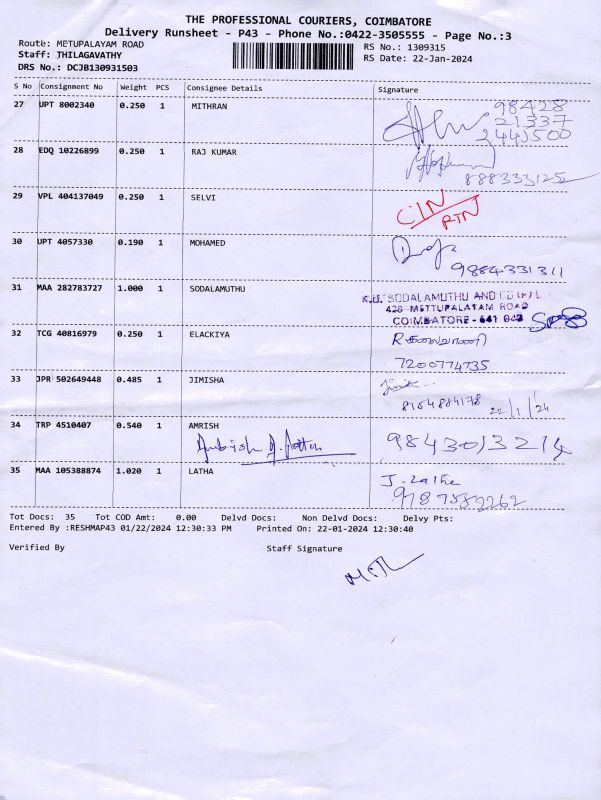 THE PROFESSIONAL COURIERS, COIMBATORE
Delivery Runsheet - P43 - Phone No.:0422-3505555 - Page No.:3
Route: METUPALAYAM ROAD
RS No.: 1309315
Staff: THILAGAVATHY
RS Date: 22-Jan-2024
DRS No.: DCJB130931503
S No Consignment No Weight PCS Consignee Details Signature
27 UPT 8002340 0.250 1 MITHRAN
98428
21337
2441500
28 EDQ 10226899 0.250 1 RAJ KUMAR
888333125
29 VPL 404137049 0.250 1 SELVI
CIN
RTN
30 UPT 4057330 0.190 1 MOHAMED
9884331311
31 MAA 282783727 1.000 1 SODALAMUTHU
SODALAMUTHU AND CO
428 METTUPALAYAM ROAD
COIMBATORE - 641 043
32 TCG 40816979 0.250 1 ELACKIYA
7200774735
33 JPR 502649448 0.485 1 JIMISHA
8154884178 22/1/24
34 TRP 4510407 0.540 1 AMRISH
9843013214
35 MAA 105388874 1.020 1 LATHA
J. Latha
9789552262
Tot Docs: 35 Tot COD Amt: 0.00 Delvd Docs: Non Delvd Docs: Delvy Pts:
Entered By :RESHMAP43 01/22/2024 12:30:33 PM Printed On: 22-01-2024 12:30:40
Verified By Staff Signature